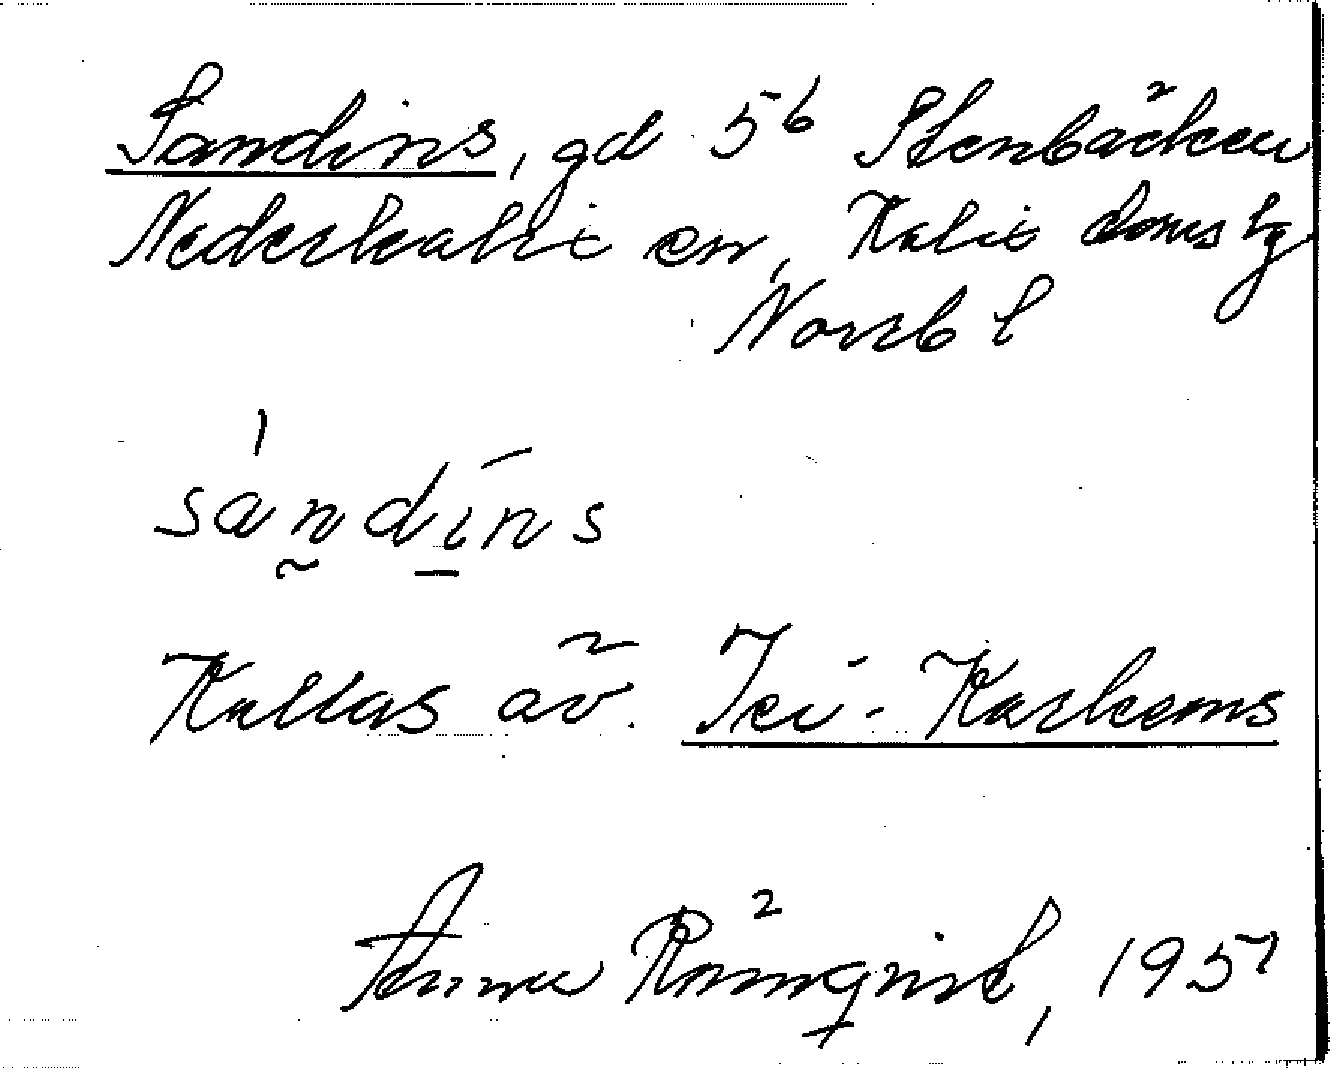 Sandins, gd 5⁶ Stenbäcken
Nederkalix sn, Kalix doms lg
Norrb l
sandins
Kallas äv. Jei-Karkems
Anna Rönnqvist, 1957